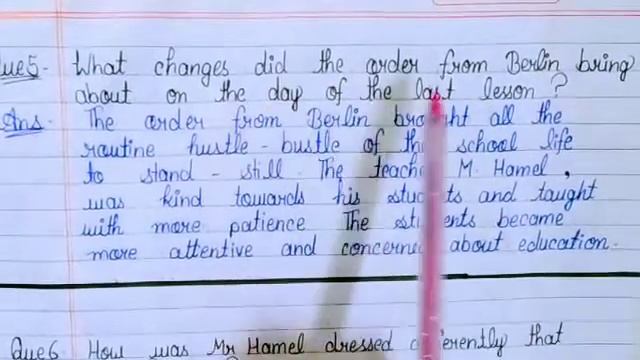 Que5- What changes did the order from Berlin bring
about on the day of the last lesson ?
Ans. The order from Berlin brought all the
routine hustle - bustle of the school life
to stand - still. The teacher M. Hamel,
was kind towards his students and taught
with more patience The students became
more attentive and concerned about education.
Que6 How was Mr Hamel dressed differently that